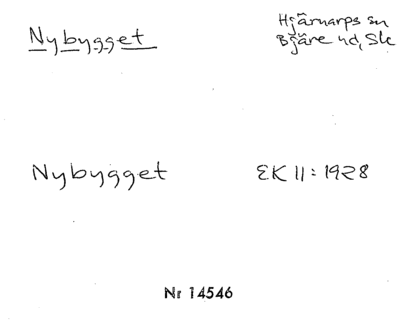 Nybygget
Hjärnarps sn
Bjäre hd, Sk
Nybygget
EK 11:1928
Nr 14546